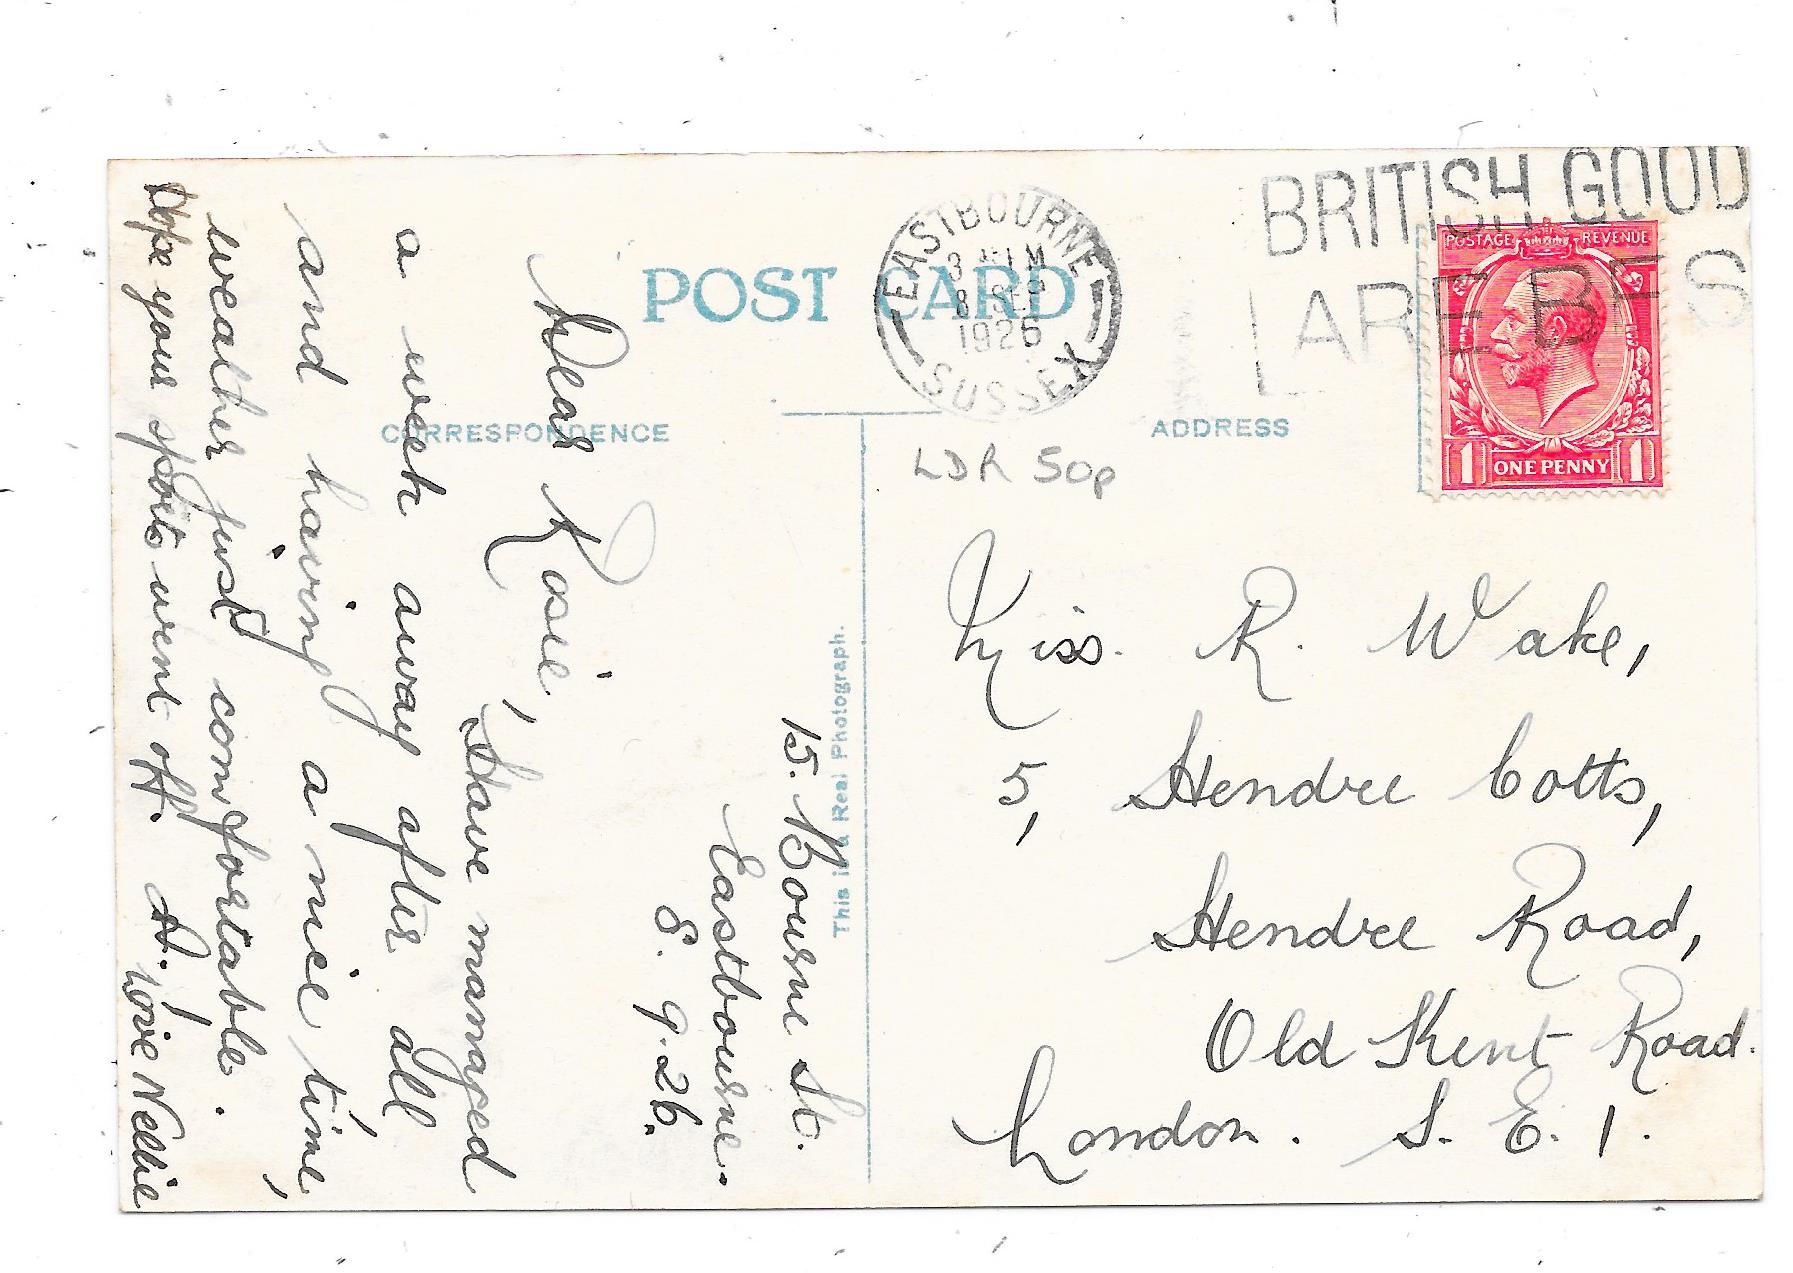 POST CARD
CORRESPONDENCE
ADDRESS
This is a Real Photograph.
EASTBOURNE
SUSSEX
8 SEP
1926
BRITISH GOOD
ARE BES
POSTAGE REVENUE
1 ONE PENNY 1
LDR 50p
15. Bourne St.
Eastbourne.
8. 9. 26.
Dear Rosie,
Have managed
a week away after all
and having a nice time,
weather just comfortable.
Hope your sports went off.
Love Nellie
Miss. R. Wake,
5, Hendre Cotts,
Hendre Road,
Old Kent Road.
London. S. E. 1.